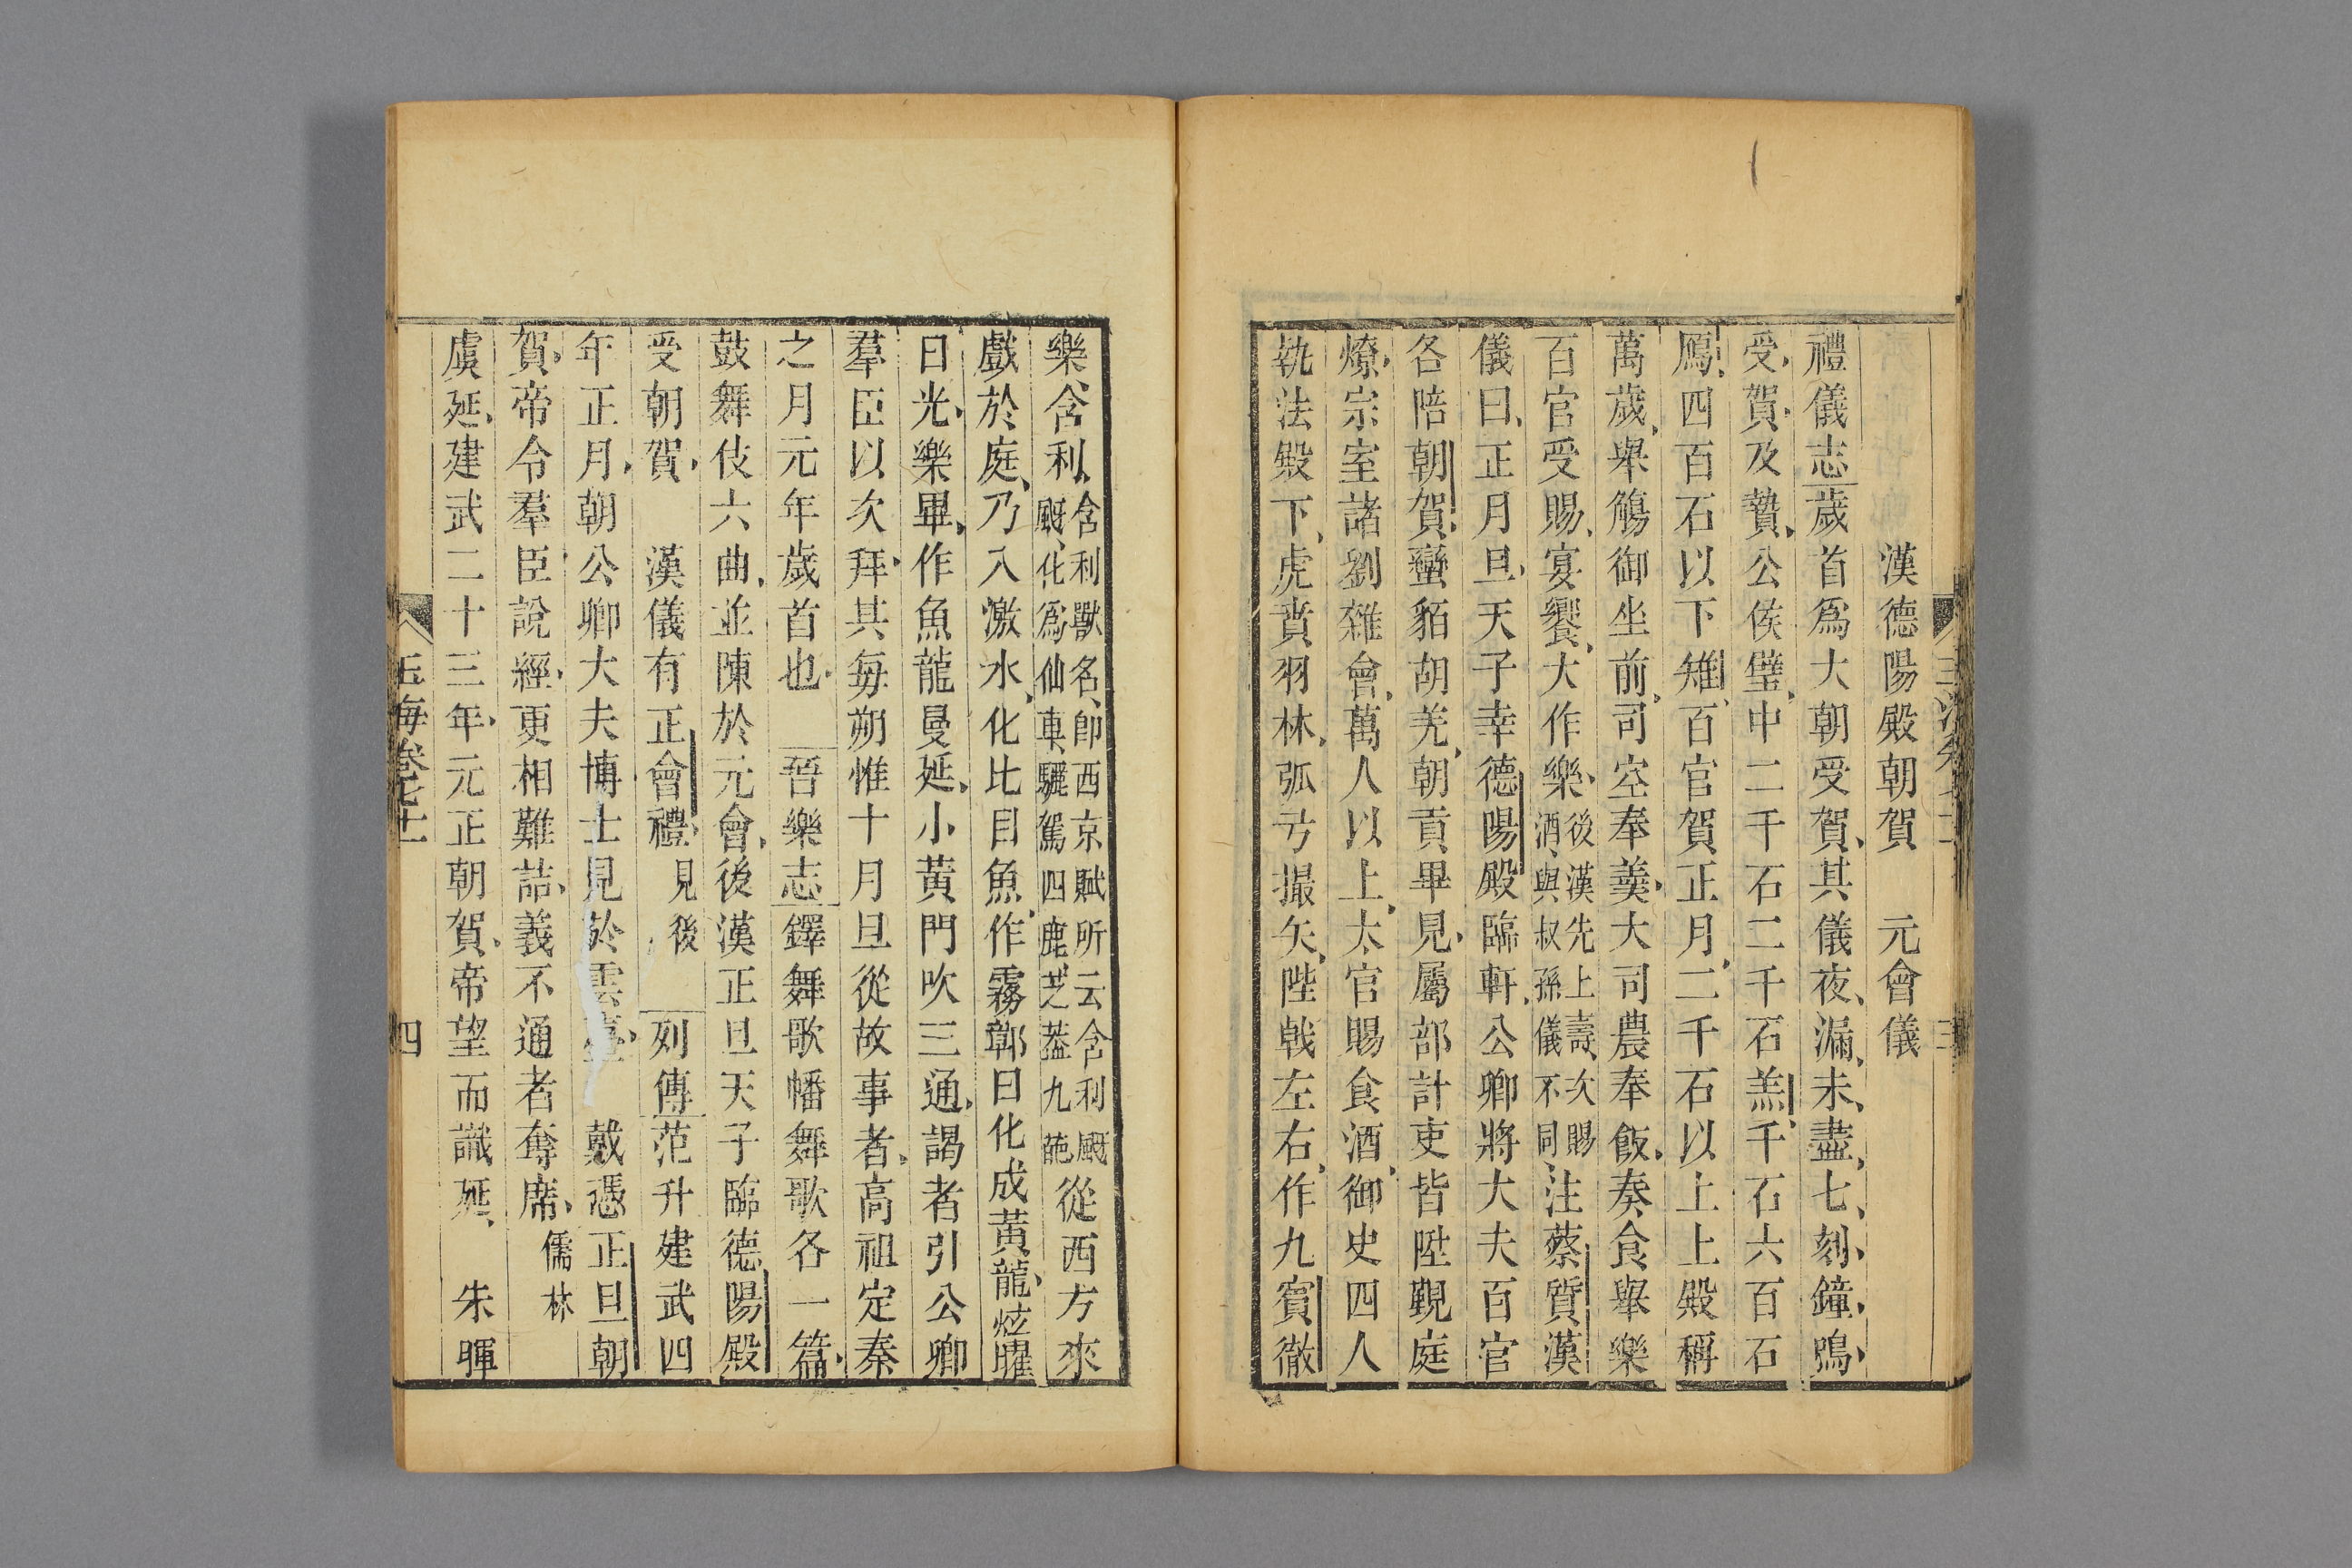 漢德陽殿朝賀　元會儀
禮儀志歲首爲大朝受賀、其儀夜、漏、未、盡、七、刻、鐘、鳴、
受、賀、及贄、公侯璧、中二千石二千石羔、千石六百石
鴈、四百石以下雉、百官賀正月、二千石以上上殿稱
萬歲、舉觴御坐前、司空奉羹、大司農奉飯、奏食舉樂
百官受賜、宴饗、大作樂、後漢先上壽、次賜
酒、與叔孫儀不同、注蔡質漢
儀曰、正月旦、天子幸德陽殿臨軒、公卿將大夫百官
各陪朝賀、蠻貊胡羌、朝貢畢見、屬部計吏皆陛覲庭
燎、宗室諸劉雜會、萬人以上、太官賜食酒、御史四人
執法殿下、虎賁羽林、弧弓撮矢、陛戟左右、作九賓徹
樂、含利、含利獸名、卽西京賦所云含利颬
颬、化爲仙車、驪駕四鹿、芝葢九葩從西方來
戲於庭、乃入激水、化比目魚、作霧鄣曰化成黃龍、炫曜
日光、樂畢、作魚龍曼延、小黃門吹三通、謁者引公卿
羣臣以次拜、其每朔惟十月旦從故事者、高祖定秦
之月元年歲首也、　晉樂志鐸舞歌幡舞歌各一篇、
鼓舞伎六曲、並陳於元會、後漢正旦天子臨德陽殿
受朝賀、　漢儀有正會禮、見後　列傳范升建武四
年正月、朝公卿大夫博士見於雲臺、　戴憑正旦朝
賀、帝令羣臣說經、更相難詰、義不通者奪席、儒林
虞延、建武二十三年、元正朝賀、帝望而識延、　朱暉
玉海卷七十一　四